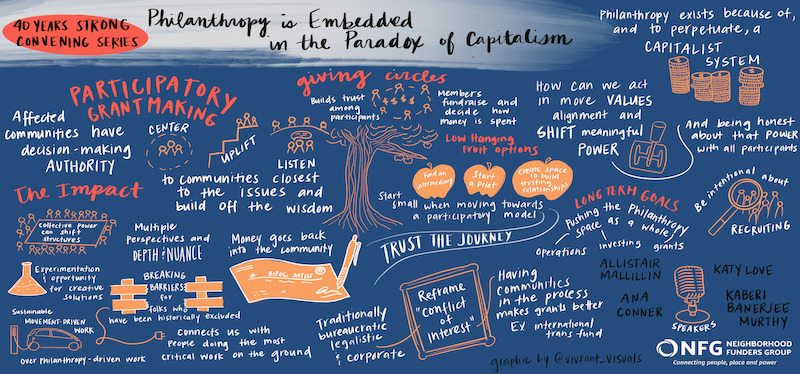 40 YEARS STRONG
CONVENING SERIES
Philanthropy is Embedded
in the Paradox of Capitalism
Philanthropy exists because of,
and to perpetuate, a
CAPITALIST
SYSTEM
PARTICIPATORY
GRANTMAKING
Affected
communities have
decision-making
AUTHORITY
CENTER
UPLIFT
LISTEN
to communities closest
to the issues and
build off the wisdom
giving circles
Builds trust
among
participants
$ $ $ $
Members
fundraise and
decide how
money is spent
Low Hanging
Fruit options
Fund an
intermediary
Start
a Pilot
Create space
to build
trusting
relationships
Start
small when moving towards
a participatory model
How can we act
in more VALUES
alignment and
SHIFT meaningful
POWER
And being honest
about that POWER
with all participants
The Impact
Collective power
can shift
structures
Multiple
Perspectives and
DEPTH & NUANCE
Experimentation
& opportunity
for creative
solutions
BREAKING
BARRIERS
for
folks who
have been historically excluded
Sustainable
MOVEMENT-DRIVEN
WORK
over Philanthropy-driven work
Connects us with
people doing the most
critical work on the ground
Money goes back
into the community
BIPOC ARTIST
TRUST THE JOURNEY
Traditionally
bureaucratic
legalistic
& corporate
Reframe
"conflict
of
interest"
Having
Communities
in the process
makes grants better
Ex: international
trans fund
LONG TERM GOALS
Pushing the Philanthropy
space as a whole
Operations
investing grants
Be intentional about
RECRUITING
ALLISTAIR
MALLILLIN
ANA
CONNER
KATY LOVE
KABERI
BANERJEE
MURTHY
SPEAKERS
graphic by @vivrant_visuals
NFG NEIGHBORHOOD
FUNDERS GROUP
Connecting people, place and power